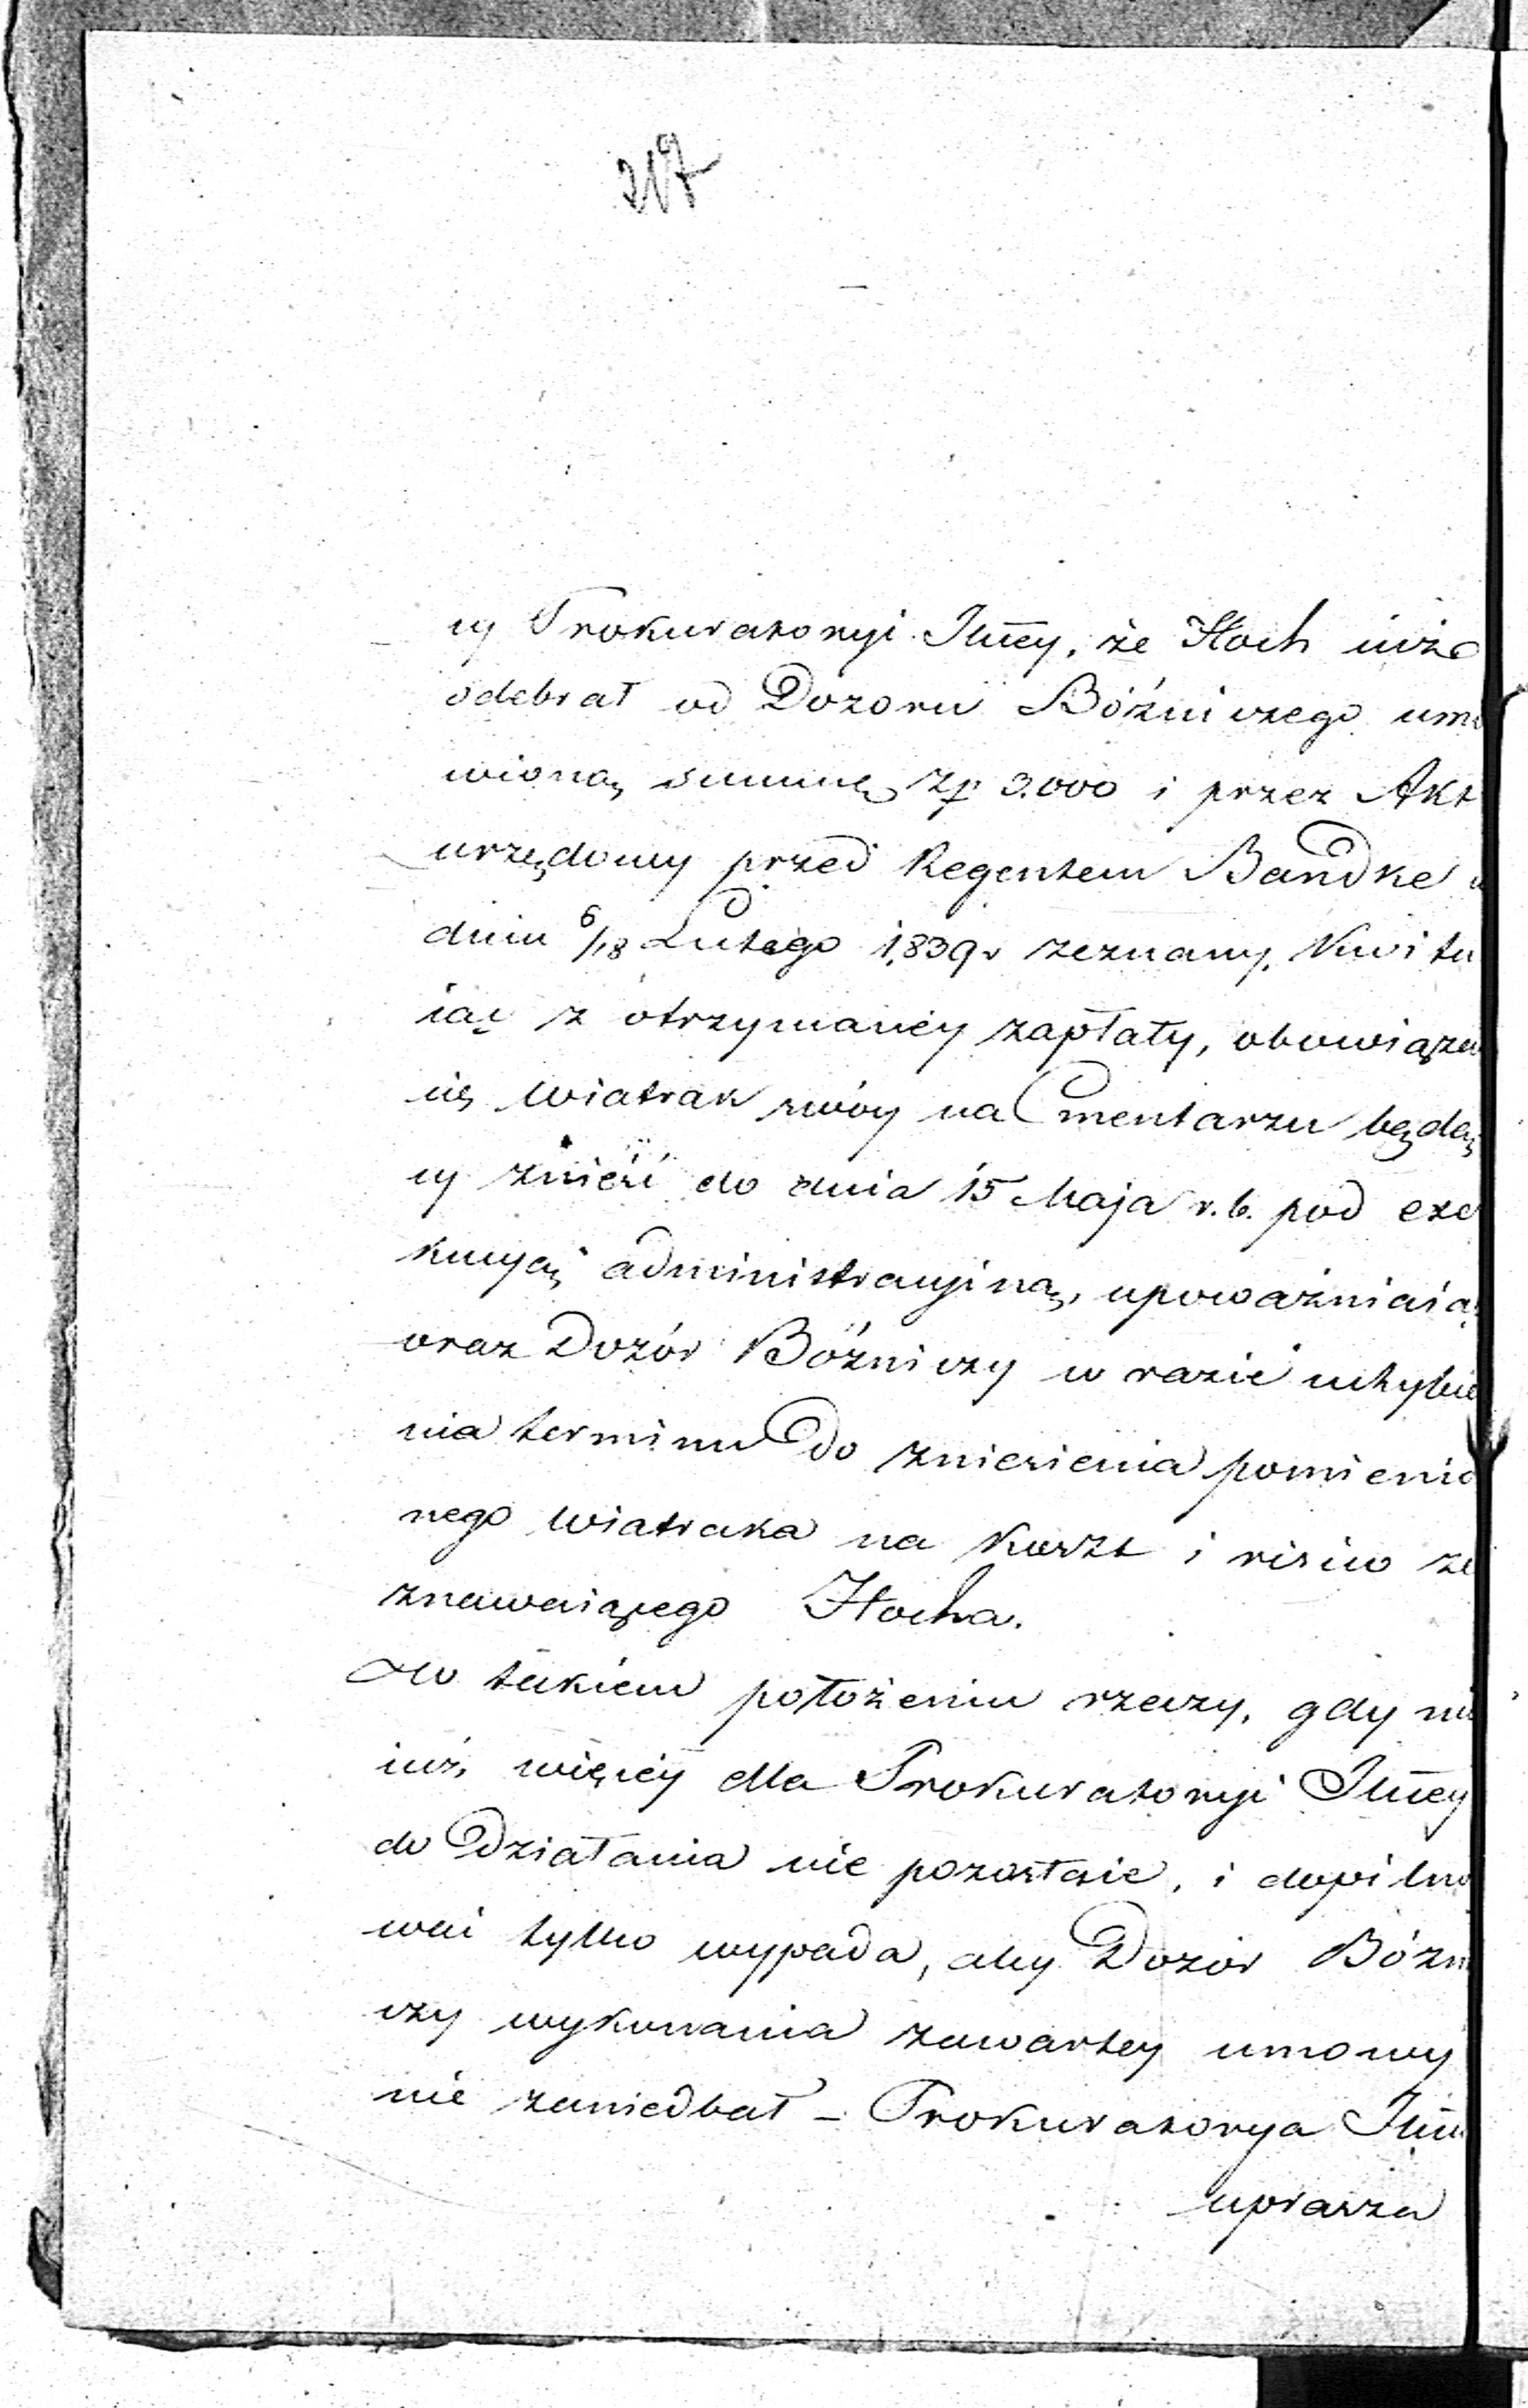 217
cy Prokuratoryi Jłney, że Hoch iuż
odebrał od Dozoru Bóźniczego umó
wioną summę Zł 3.000 i przez Akt
urzędowy przed Regentem Bandke w
dniu 6/18 Lutego 1839 r zeznany, Kwitu
iąc z otrzymanéy zapłaty, obowiązał
się Wiatrak swóy na Cmentarzu będą
cy znieść do dnia 15 Maja r.b. pod exe
kucyą administracyiną, upoważniaią
oraz Dozór Bóźniczy w razie uchybie
nia terminu do zniesienia pomienio
nego Wiatraka na Koszt i risico ze
znawaiącego Hocha.
W takiem położeniu rzeczy, gdy nic
iuż więcéy dla Prokuratoryi Jłney
do Działania nie pozostaie, i dopilno
wać tylko wypada, aby Dozór Bóźni
czy wykonania zawartey umowy
nie zaniedbał – Prokuratorya Jłna
uprasza